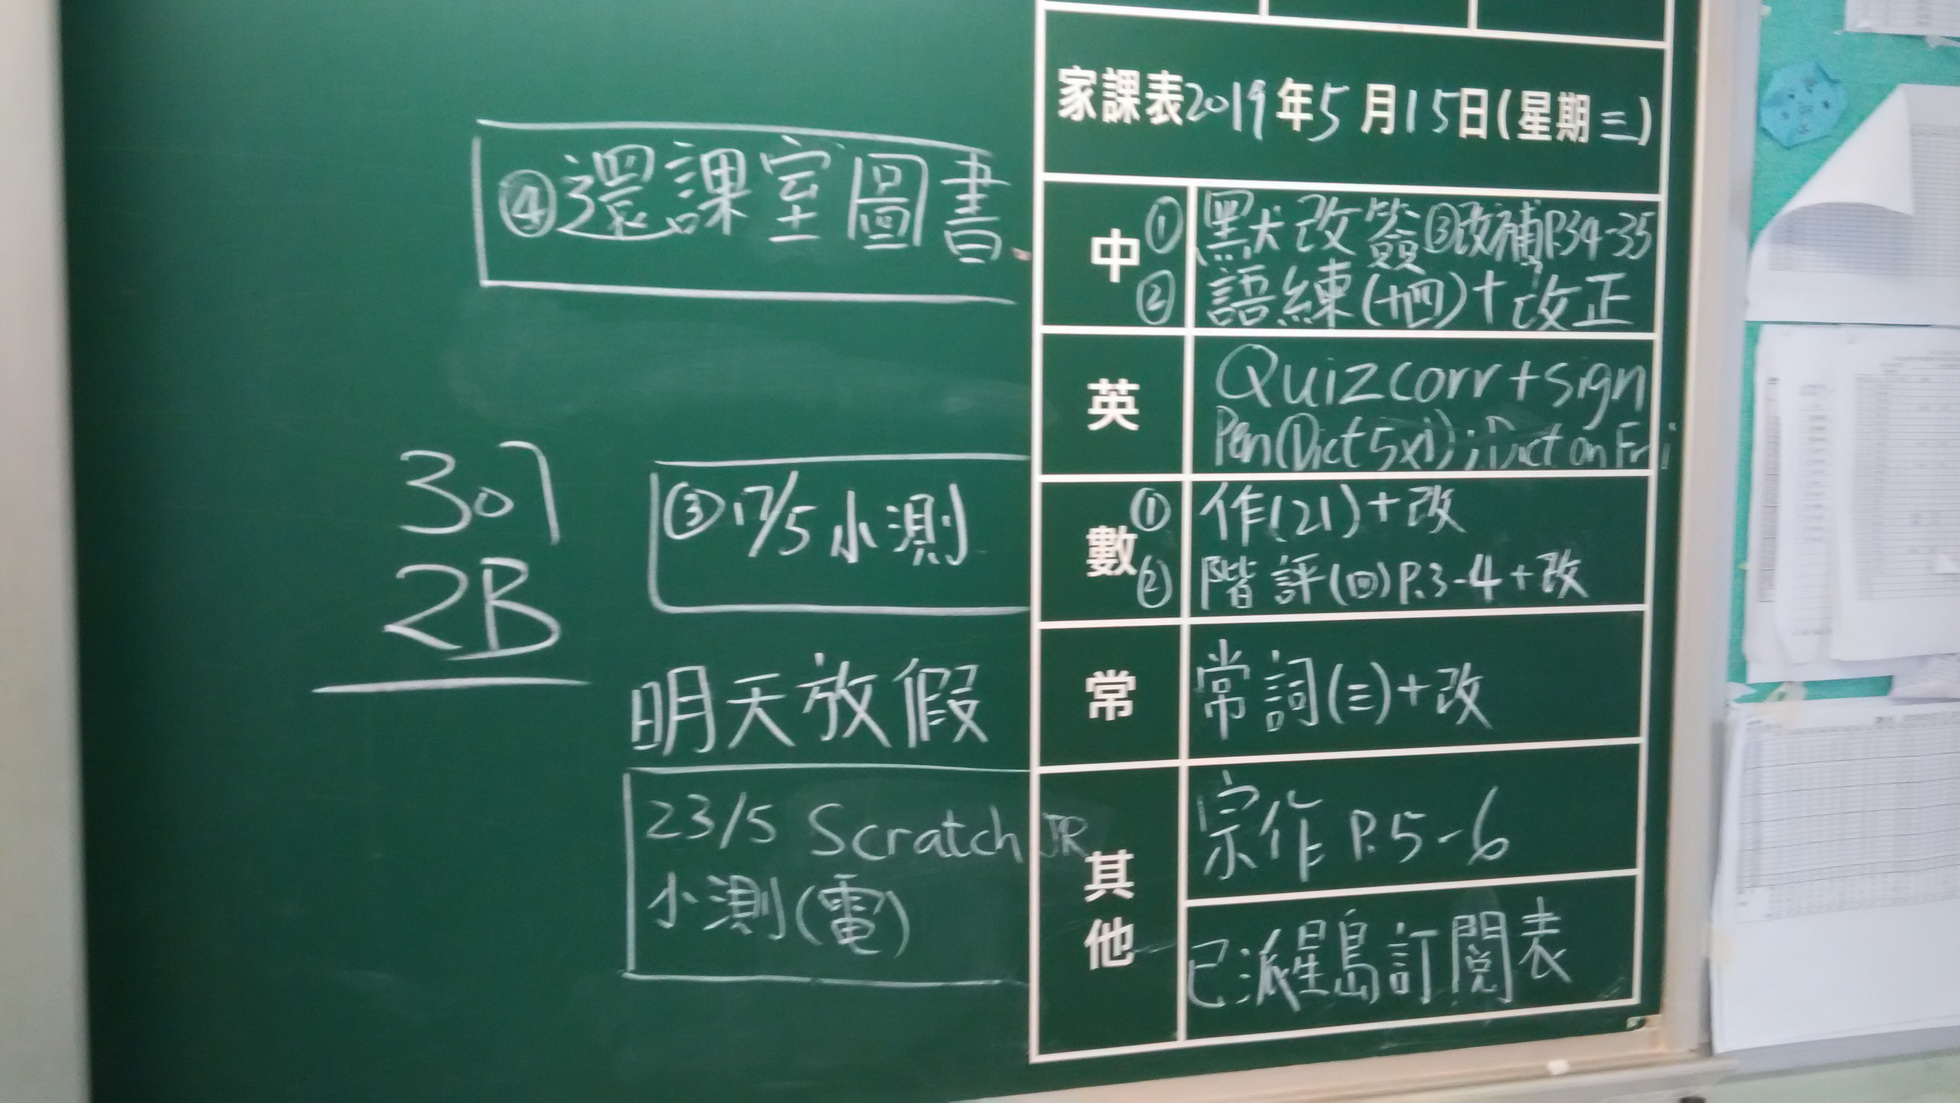 家課表2019年5月15日(星期三)
④還課室圖書
中
①默改簽③改補P.34-35
②語練(十四)+改正
英
Quiz corr + sign
Pen(Dict 5xi); Dict on Fri
307
2B
③17/5小測
數
①作(21)+改
②階評(四)P.3-4+改
明天放假
常
常詞(三)+改
23/5 Scratch JR
小測(電)
其他
宗作 P.5-6
已派星島訂閱表